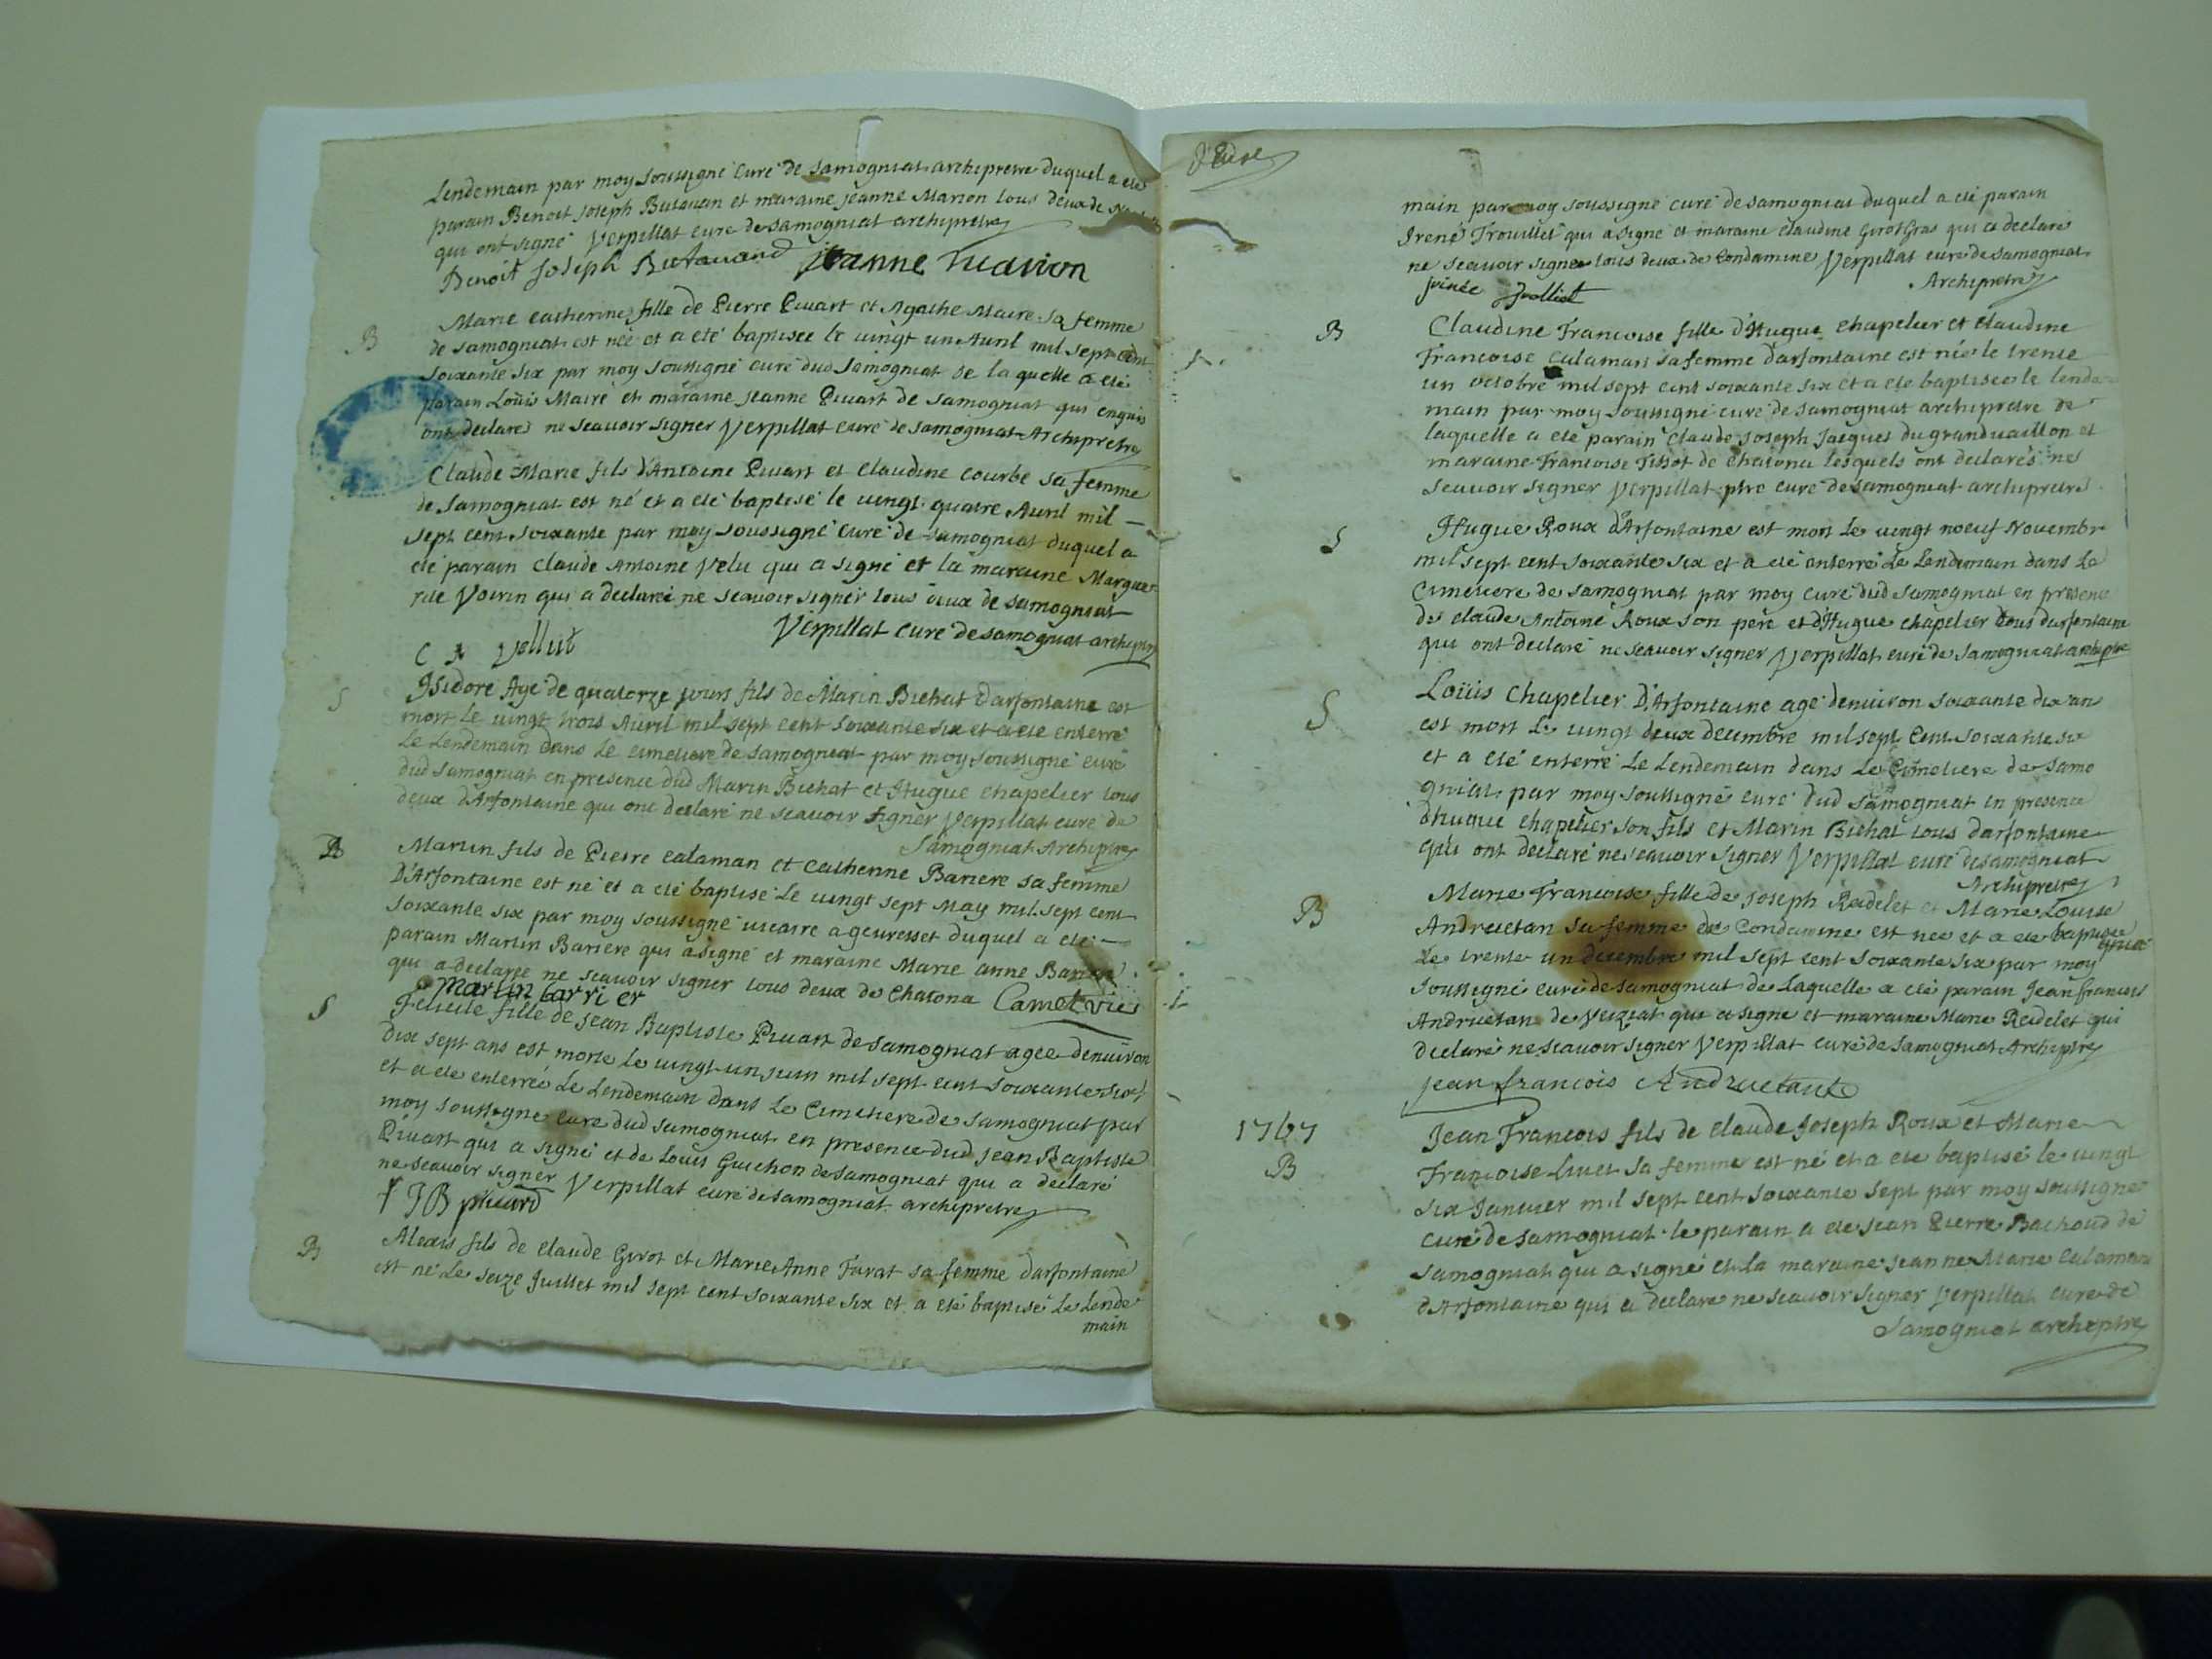 Lendemain par moy soussigné curé de samogniat archipretre duquel a eté
parain Benoit Joseph Butavan et maraine jeanne Marion tous deux de
qui ont signé Verpillat curé de samogniat archipretre
Benoit Joseph Butavand jeanne marion
B
Marie catherine fille de Pierre Pivart et Agathe Maire sa femme
de samogniat est née et a eté baptisée le vingt un Avril mil sept cent
soixante six par moy soussigné curé dud samogniat de la quelle a eté
parain Loüis Maire et maraine jeanne Pivart de samogniat qui enquis
ont declarés ne scavoir signer Verpillat curé de samogniat Archipretre
Claude Marie fils d'Antoine Pivart et claudine courbe sa femme
de samogniat est né et a eté baptisé le vingt quatre Avril mil
sept cent soixante par moy soussigné curé de samogniat duquel a
eté parain claude Antoine Velu qui a signé et la maraine Margue
rite Voirin qui a declaré ne scavoir signer tous deux de samogniat
Verpillat curé de samogniat archiptre
C A Vellut
S
Isidore Agé de quatorze jours fils de Marin Bichat d'arfontaine est
mort le vingt trois Avril mil sept cent soixante six et a eté enterré
Le Lendemain dans le cimetiere de samogniat par moy soussigné curé
dud samogniat en presence dud Marin Bichat et Hugue chapelier tous
deux d'Arfontaine qui ont declaré ne scavoir signer Verpillat curé de
Samogniat Archiptre
B
Martin fils de Pierre calaman et catherine Bariere sa femme
D'Arfontaine est né et a eté baptisé Le vingt sept May mil sept cent
soixante six par moy soussigné vicaire a geuresset duquel a eté
parain Martin Bariere qui a signé et maraine Marie anne Bariere
qui a declarée ne scavoir signer tous deux de Chatona Camet vic
martin barrier
S
Felicité fille de jean Baptiste Pivart de samogniat agée denviron
dix sept ans est morte le vingt un juin mil sept cent soixante six
et a eté enterrée Le Lendemain dans Le Cimetiere de samogniat par
moy soussigné curé dud samogniat en presence dud jean Baptiste
Pivart qui a signé et de Louis Guichon de samogniat qui a declaré
ne scavoir signer Verpillat curé de samogniat archipretre
J B pivard
B
Alexis fils de claude Girot et Marie Anne Tavat sa femme d'arfontaine
est né Le seize Juillet mil sept cent soixante six et a eté baptisé Le Lende
main
main par moy soussigné curé de samogniat duquel a eté parain
Irené Trouillet qui a signé et maraine claudine Girot Gras qui a declaré
ne scavoir signer tous deux de condamine Verpillat curé de samogniat
Archipretre
B
Claudine Francoise fille d'Hugue chapelier et claudine
Francoise calaman sa femme d'arfontaine est née le trente
un octobre mil sept cent soixante six et a eté baptisée le lende
main par moy soussigné curé de samogniat archipretre de
laquelle a eté parain claude joseph Jacques du granduaillon et
maraine Francoise Tissot de chatona lesquels ont declarés ne
scavoir signer Verpillat ptre curé de samogniat archipretre
S
Hugue Roux d'Arfontaine est mort Le vingt noeuf Novembre
mil sept cent soixante six et a eté enterré Le Lendemain dans Le
Cimetiere de samogniat par moy curé dud samogniat en presence
de claude Antoine Roux son pere et d'Hugue chapelier tous d'arfontaine
qui ont declaré ne scavoir signer Verpillat curé de samogniat archiptre
S
Loüis chapelier D'Arfontaine agé denviron soixante dix an
est mort Le vingt deux decembre mil sept cent soixante six
et a eté enterré Le Lendemain dans Le Cimetiere de samo
gniat par moy soussigné curé dud samogniat en presence
d'hugue chapelier son fils et Marin Bichat tous d'arfontaine
qui ont declaré ne scavoir signer Verpillat curé de samogniat
Archipretre
B
Marie Francoise fille de joseph Reidelet et Marie Louise
Andruetan sa femme de Condamine est née et a eté baptisée
Le trente un decembre mil sept cent soixante six par moy
soussigné curé de samogniat de Laquelle a eté parain Jean francois
Andruetan de Veiziat qui a signé et maraine Marie Reidelet qui
declaré ne scavoir signer Verpillat curé de samogniat Archiptre
jean francois Andruetant
1767
B
Jean Francois fils de claude Joseph Roux et Marie
Francoise Livet sa femme est né et a eté baptisé le vingt
six Janvier mil sept cent soixante sept par moy soussigné
curé de samogniat. le parain a eté jean Pierre Bachoud de
samogniat qui a signé et la maraine jeanne Marie calaman
d'Arfontaine qui a declaré ne scavoir signer Verpillat curé de
Samogniat archiptre